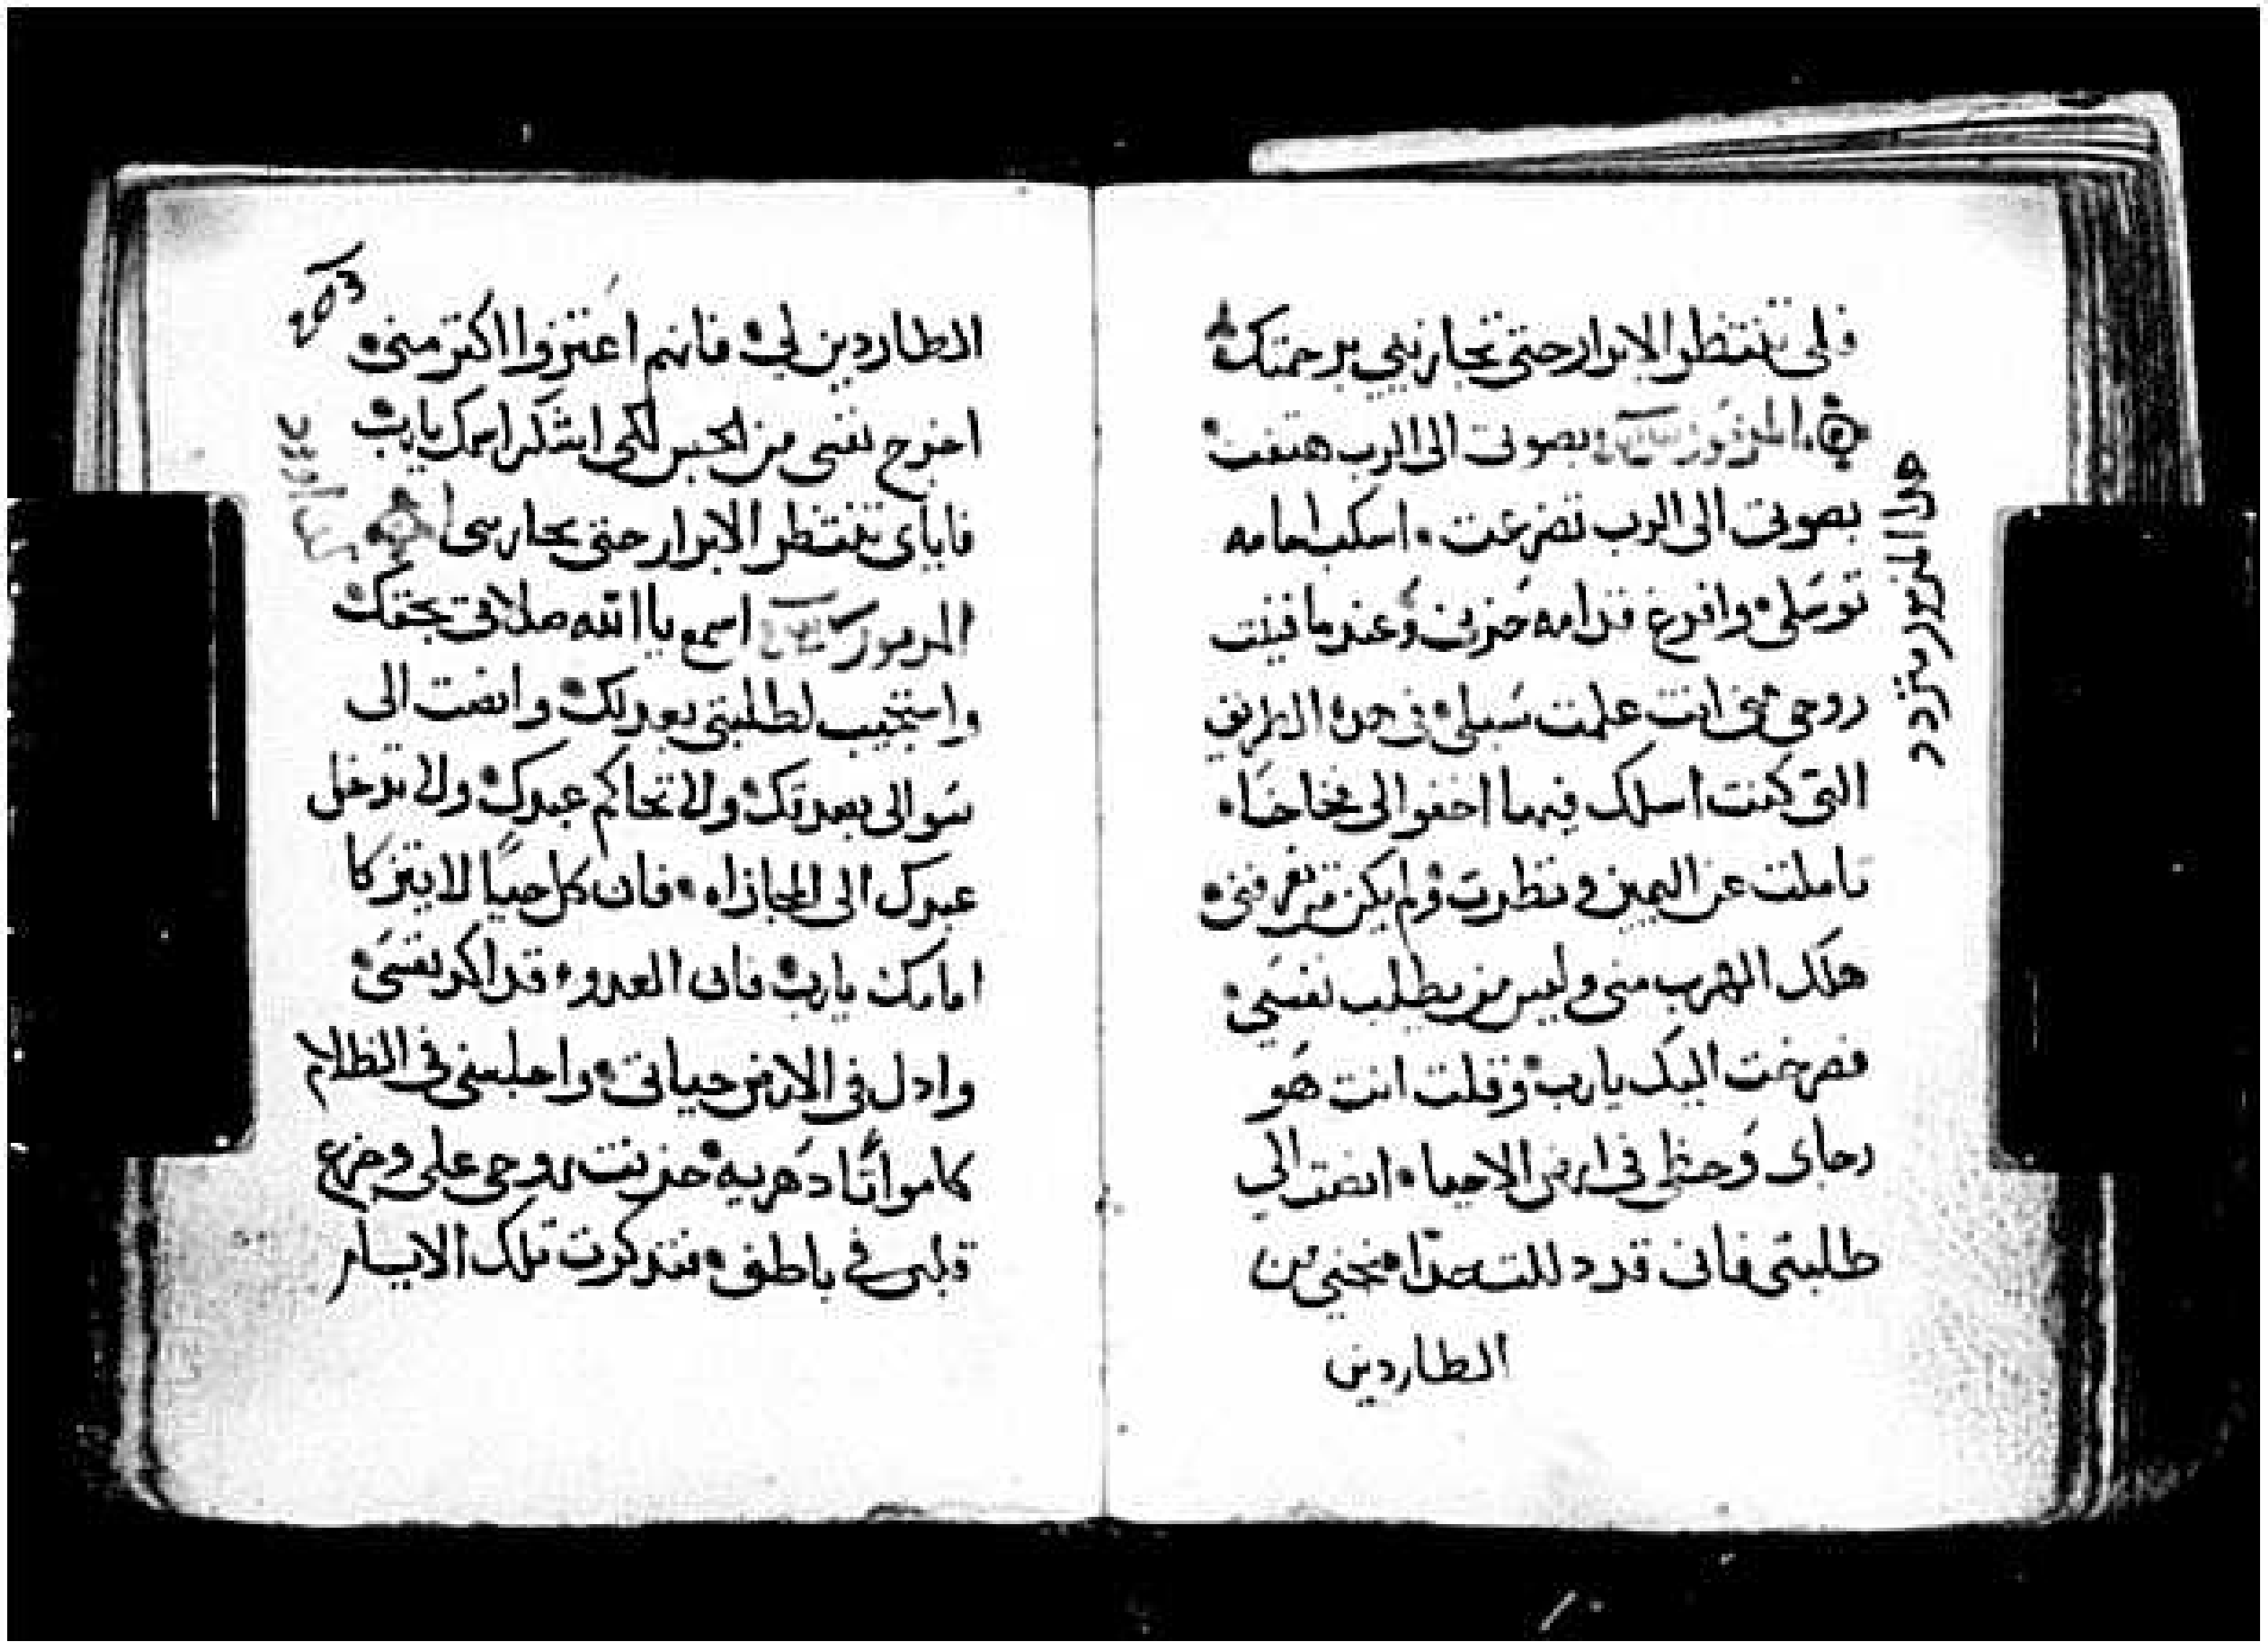 ولي تنتظر الابرار حتى تجازيني برحمتك
المزمور بصوتي الى الرب هتفت
بصوتي الى الرب تضرعت اسكب امامه
توسلي وافرغ قدامه حزني وعند ما فنيت
روحي مني انت علمت سبلي في هذه الطريق
التي كنت اسلك فيها اخفوا لي فخاخا
تاملت عن اليمين ونظرت ولم يكن من يعرفني
هلك المهرب مني وليس من يطلب نفسي
فصرخت اليك يارب وقلت انت هو
رجاى وحظى في ارض الاحيا انصت الى
طلبتي فاني قد دللت جدا نجني من
الطاردين
هذا المزمور يردد
203
الطاردين لي فانهم اعتزوا اكتر منى
اخرج نفسى من الحبس لكى اشكر اسمك يارب
فاياى تنتظر الابرار حتى تجازيني
المزمور اسمع يا الله صلاتي بحقك
واستجيب لطلبتي بعدلك وانصت الى
سوالى بعدتك ولا تحاكم عبدك ولا تدخل
عبدك الى المجازاه فان كل حيا لا يتزكا
امامك يارب فان العدو قد اكد نفسى
وادل في الارض حياتي واجلسنى في الظلام
كامواتا دهريه حزنت روحى على وجزع
قلبى في باطني تذكرت تلك الايام